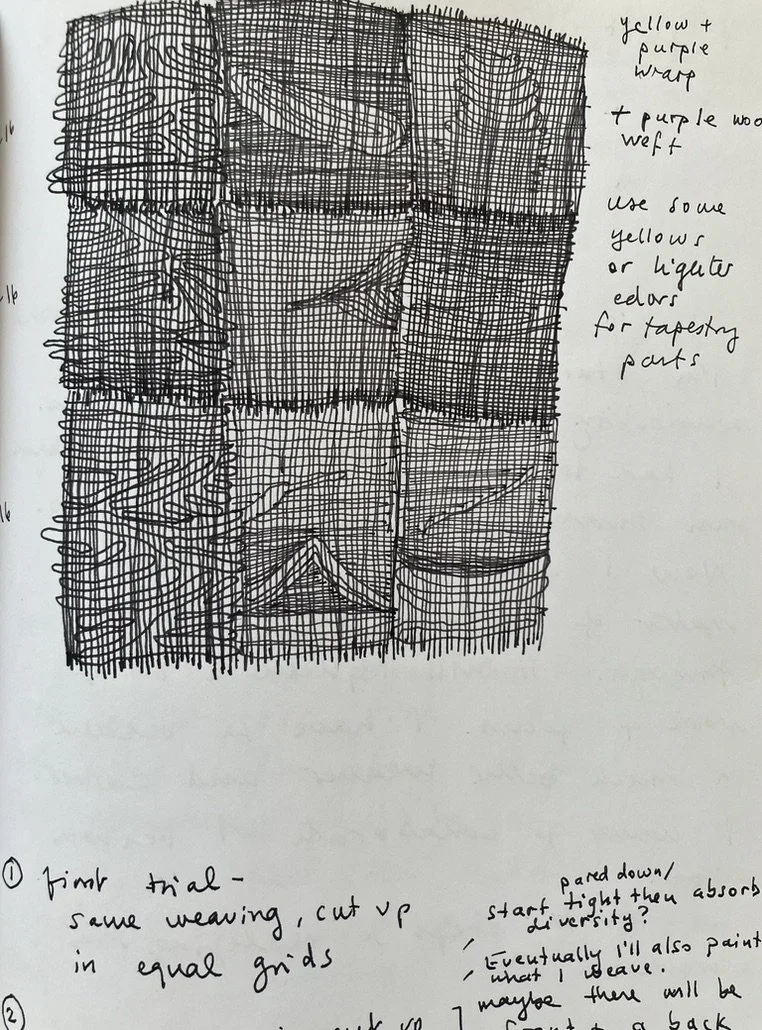 yellow +
purple
wrarp
+ purple woo
weft
use some
yellows
or lighter
colors
for tapestry
parts
16
-16
16
① first trial -
same weaving, cut up
in equal grids
pared down/
start tight then absorb
diversity?
Eventually I'll also paint
what I weave.
maybe there will be
front + a back
②
cut up